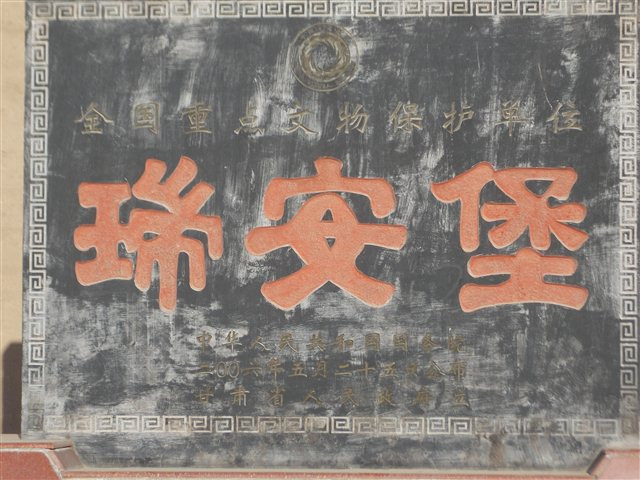 全国重点文物保护单位
瑞安堡
中华人民共和国国务院
二〇〇六年五月二十五日公布
甘肃省人民政府立